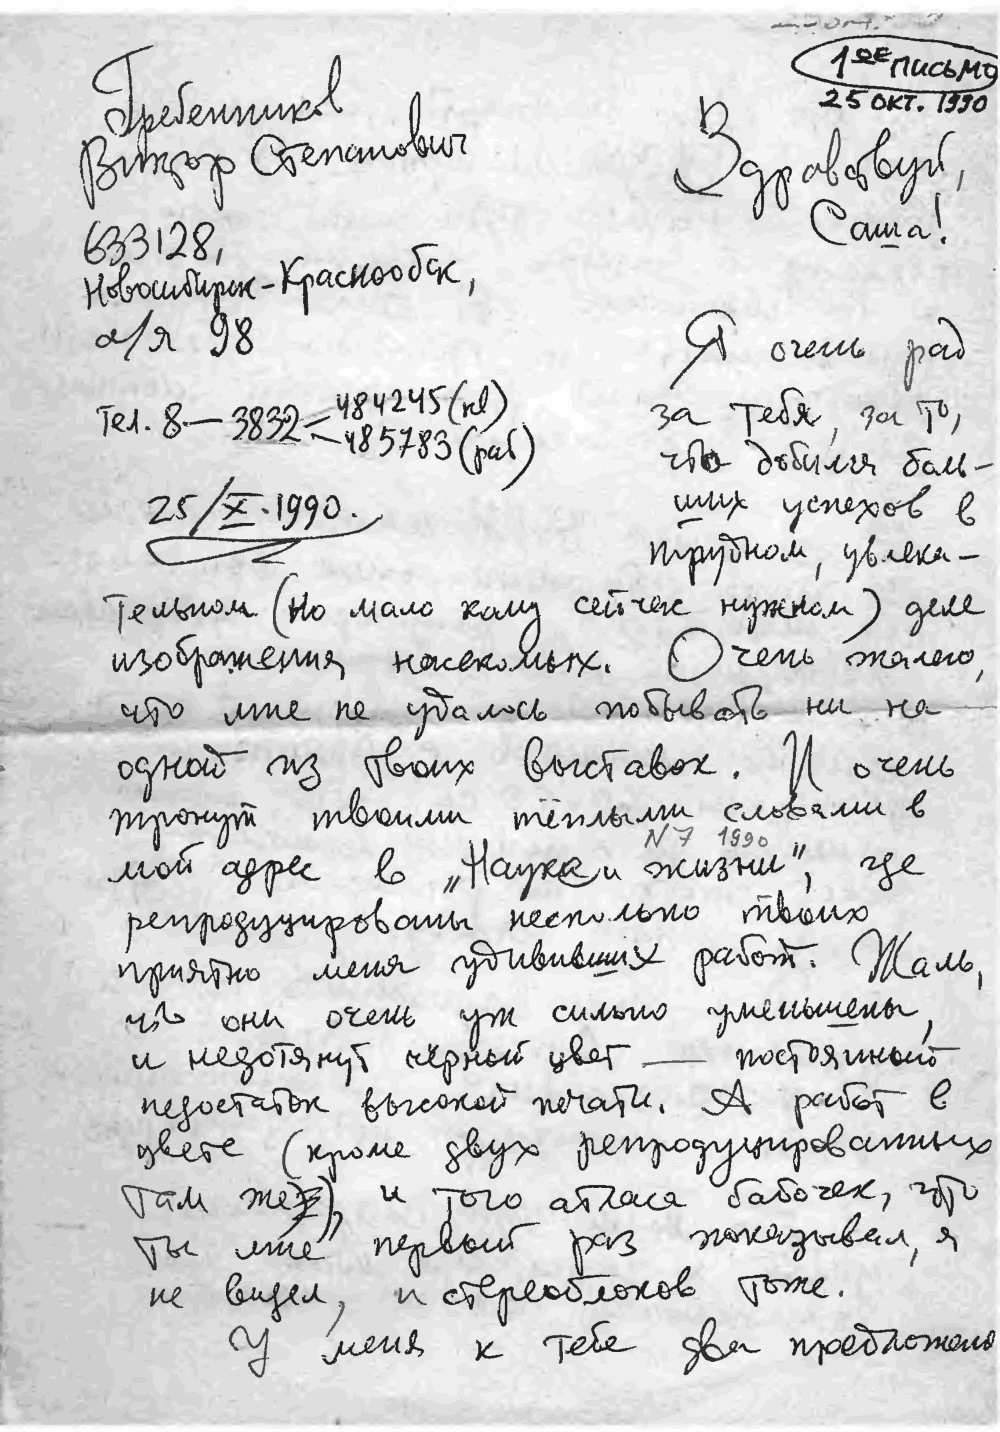 1ое письмо
25 окт. 1990
Гребенников
Виктор Степанович
633128,
Новосибирск-Краснообск,
а/я 98
Тел. 8 — 3832 484245 (кв)
485783 (раб)
25/X.1990.
Здравствуй,
Саша!
Я очень рад
за тебя, за то,
что добился боль-
ших успехов в
трудном, увлека-
тельном (но мало кому сейчас нужном) деле
изображения насекомых. Очень жалею,
что мне не удалось побывать ни на
одной из твоих выставок. И очень
тронут твоими тёплыми словами в
N 7 1990
мой адрес в „Наука и жизни", где
репродуцированы несколько твоих
приятно меня удививших работ. Жаль,
что они очень уж сильно уменьшены,
и недотянут чёрный цвет — постоянный
недостаток высокой печати. А работ в
цвете (кроме двух репродуцированных
там же), и того атласа бабочек, что
ты мне первый раз показывал, я
не видел, и стереоблоков тоже.
У меня к тебе два предложения